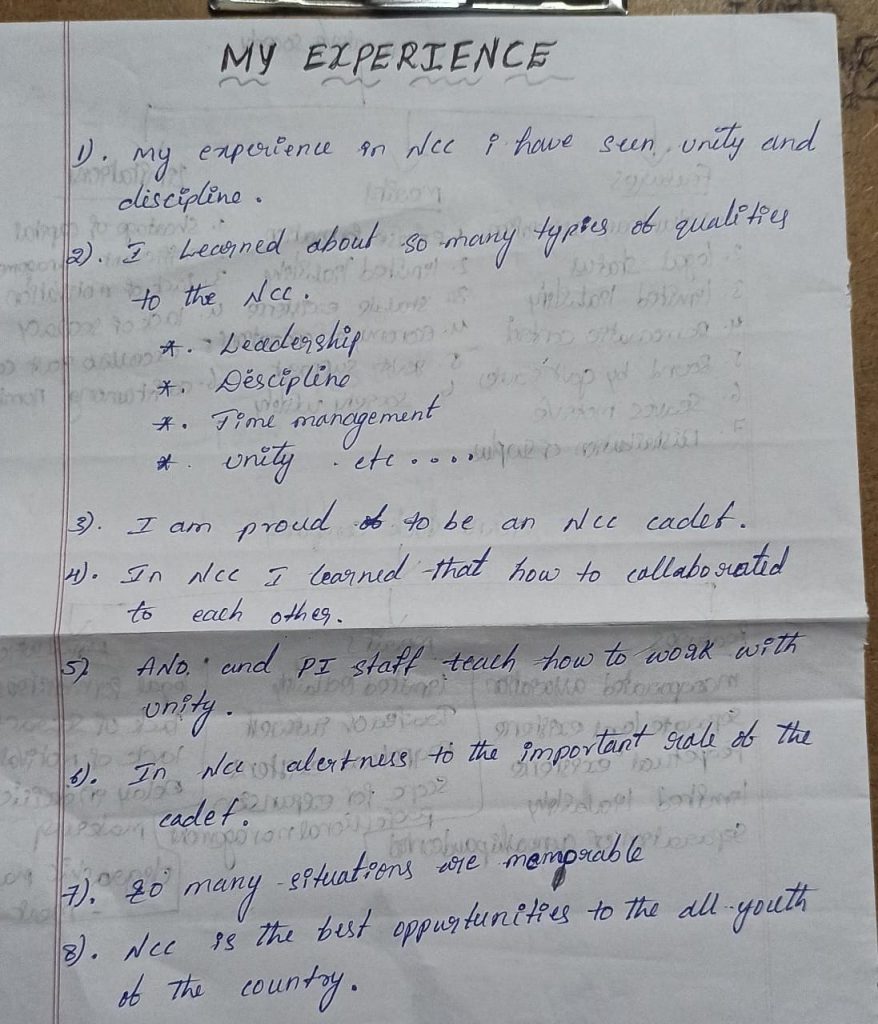 MY EXPERIENCE
1). my experience in Ncc i have seen unity and
discipline.
2). I Learned about so many types of qualities
to the Ncc.
*. Leadership
*. Descipline
*. Time management
*. unity. etc.....
3). I am proud to be an Ncc cadet.
4). In Ncc I learned that how to collaborated
to each other.
5) ANO. and PI staff teach how to work with
unity.
6). In Ncc alertness to the important role of the
cadet.
7). So many situations are memorable
8). Ncc is the best oppurtunities to the all youth
of the country.